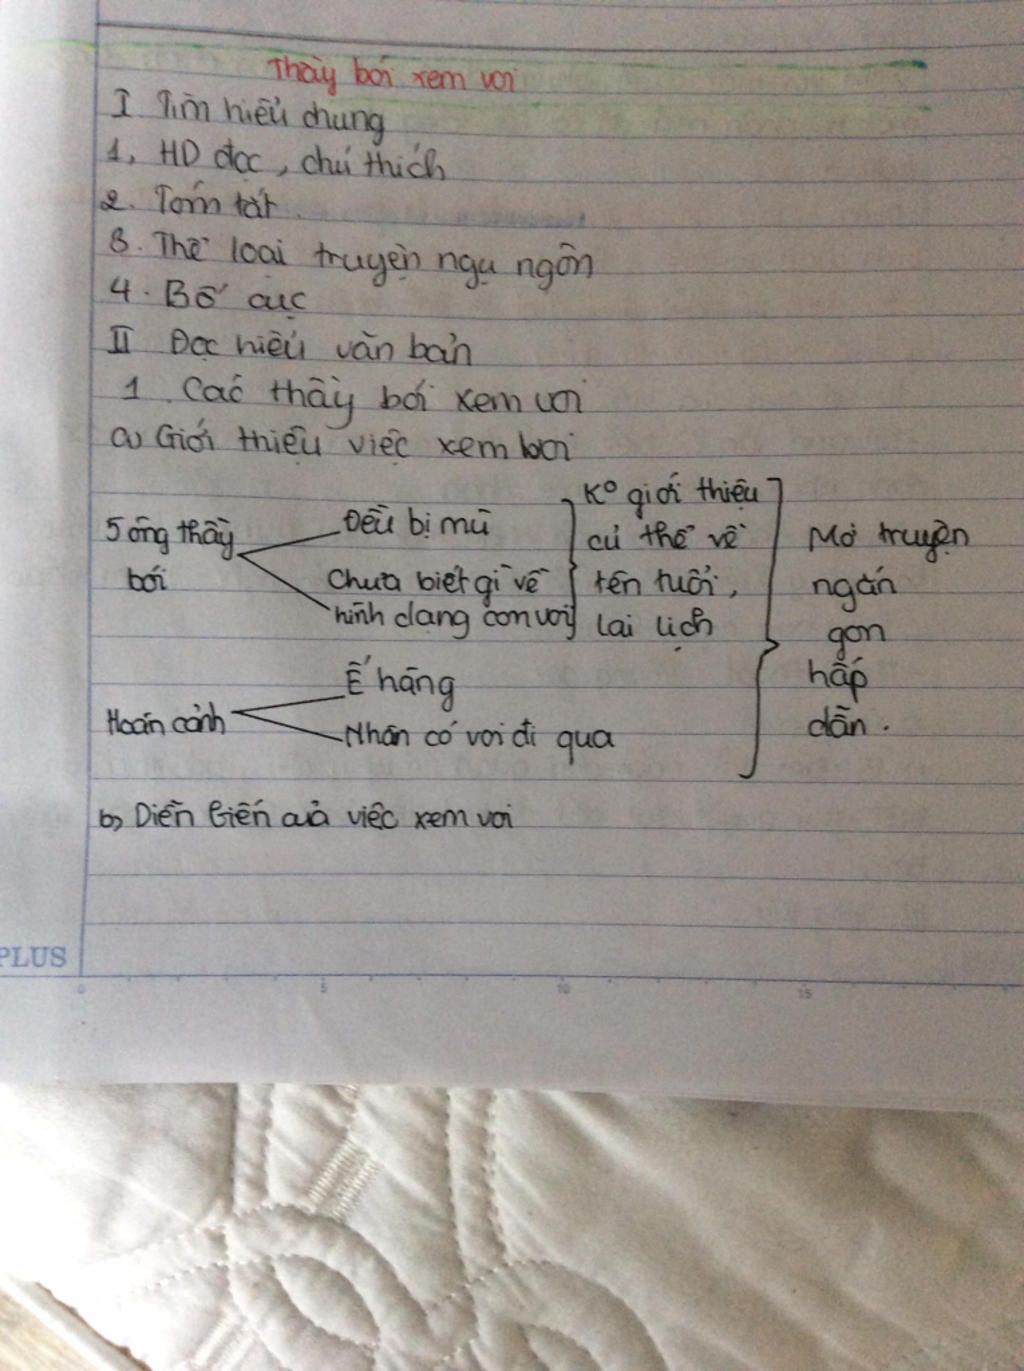 Thầy bói xem voi
I Tìm hiểu chung
1, HD đọc, chú thích
2. Tóm tắt.
3. Thể loại truyện ngụ ngôn
4. Bố cục
II Đọc hiểu văn bản
1. Các thầy bói xem voi
a) Giới thiệu việc xem bói
5 ông thầy bói
Đều bị mù
Chưa biết gì về
hình dạng con voi
K° giới thiệu
cụ thể về
tên tuổi,
lai lịch
Hoàn cảnh
Ế hàng
Nhân có voi đi qua
Mở truyện
ngắn
gọn
hấp
dẫn.
b) Diễn biến của việc xem voi
PLUS
0 5 10 15